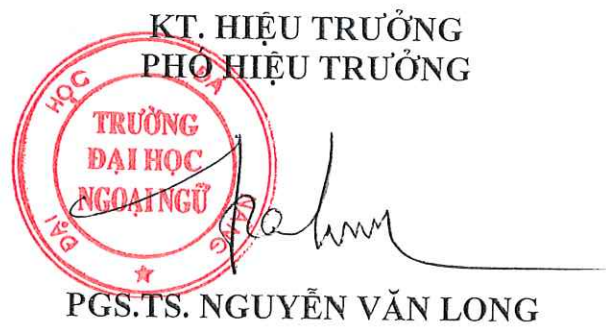 KT. HIỆU TRƯỞNG
PHÓ HIỆU TRƯỞNG
ĐẠI HỌC ĐÀ NẴNG
TRƯỜNG
ĐẠI HỌC
NGOẠI NGỮ
PGS.TS. NGUYỄN VĂN LONG